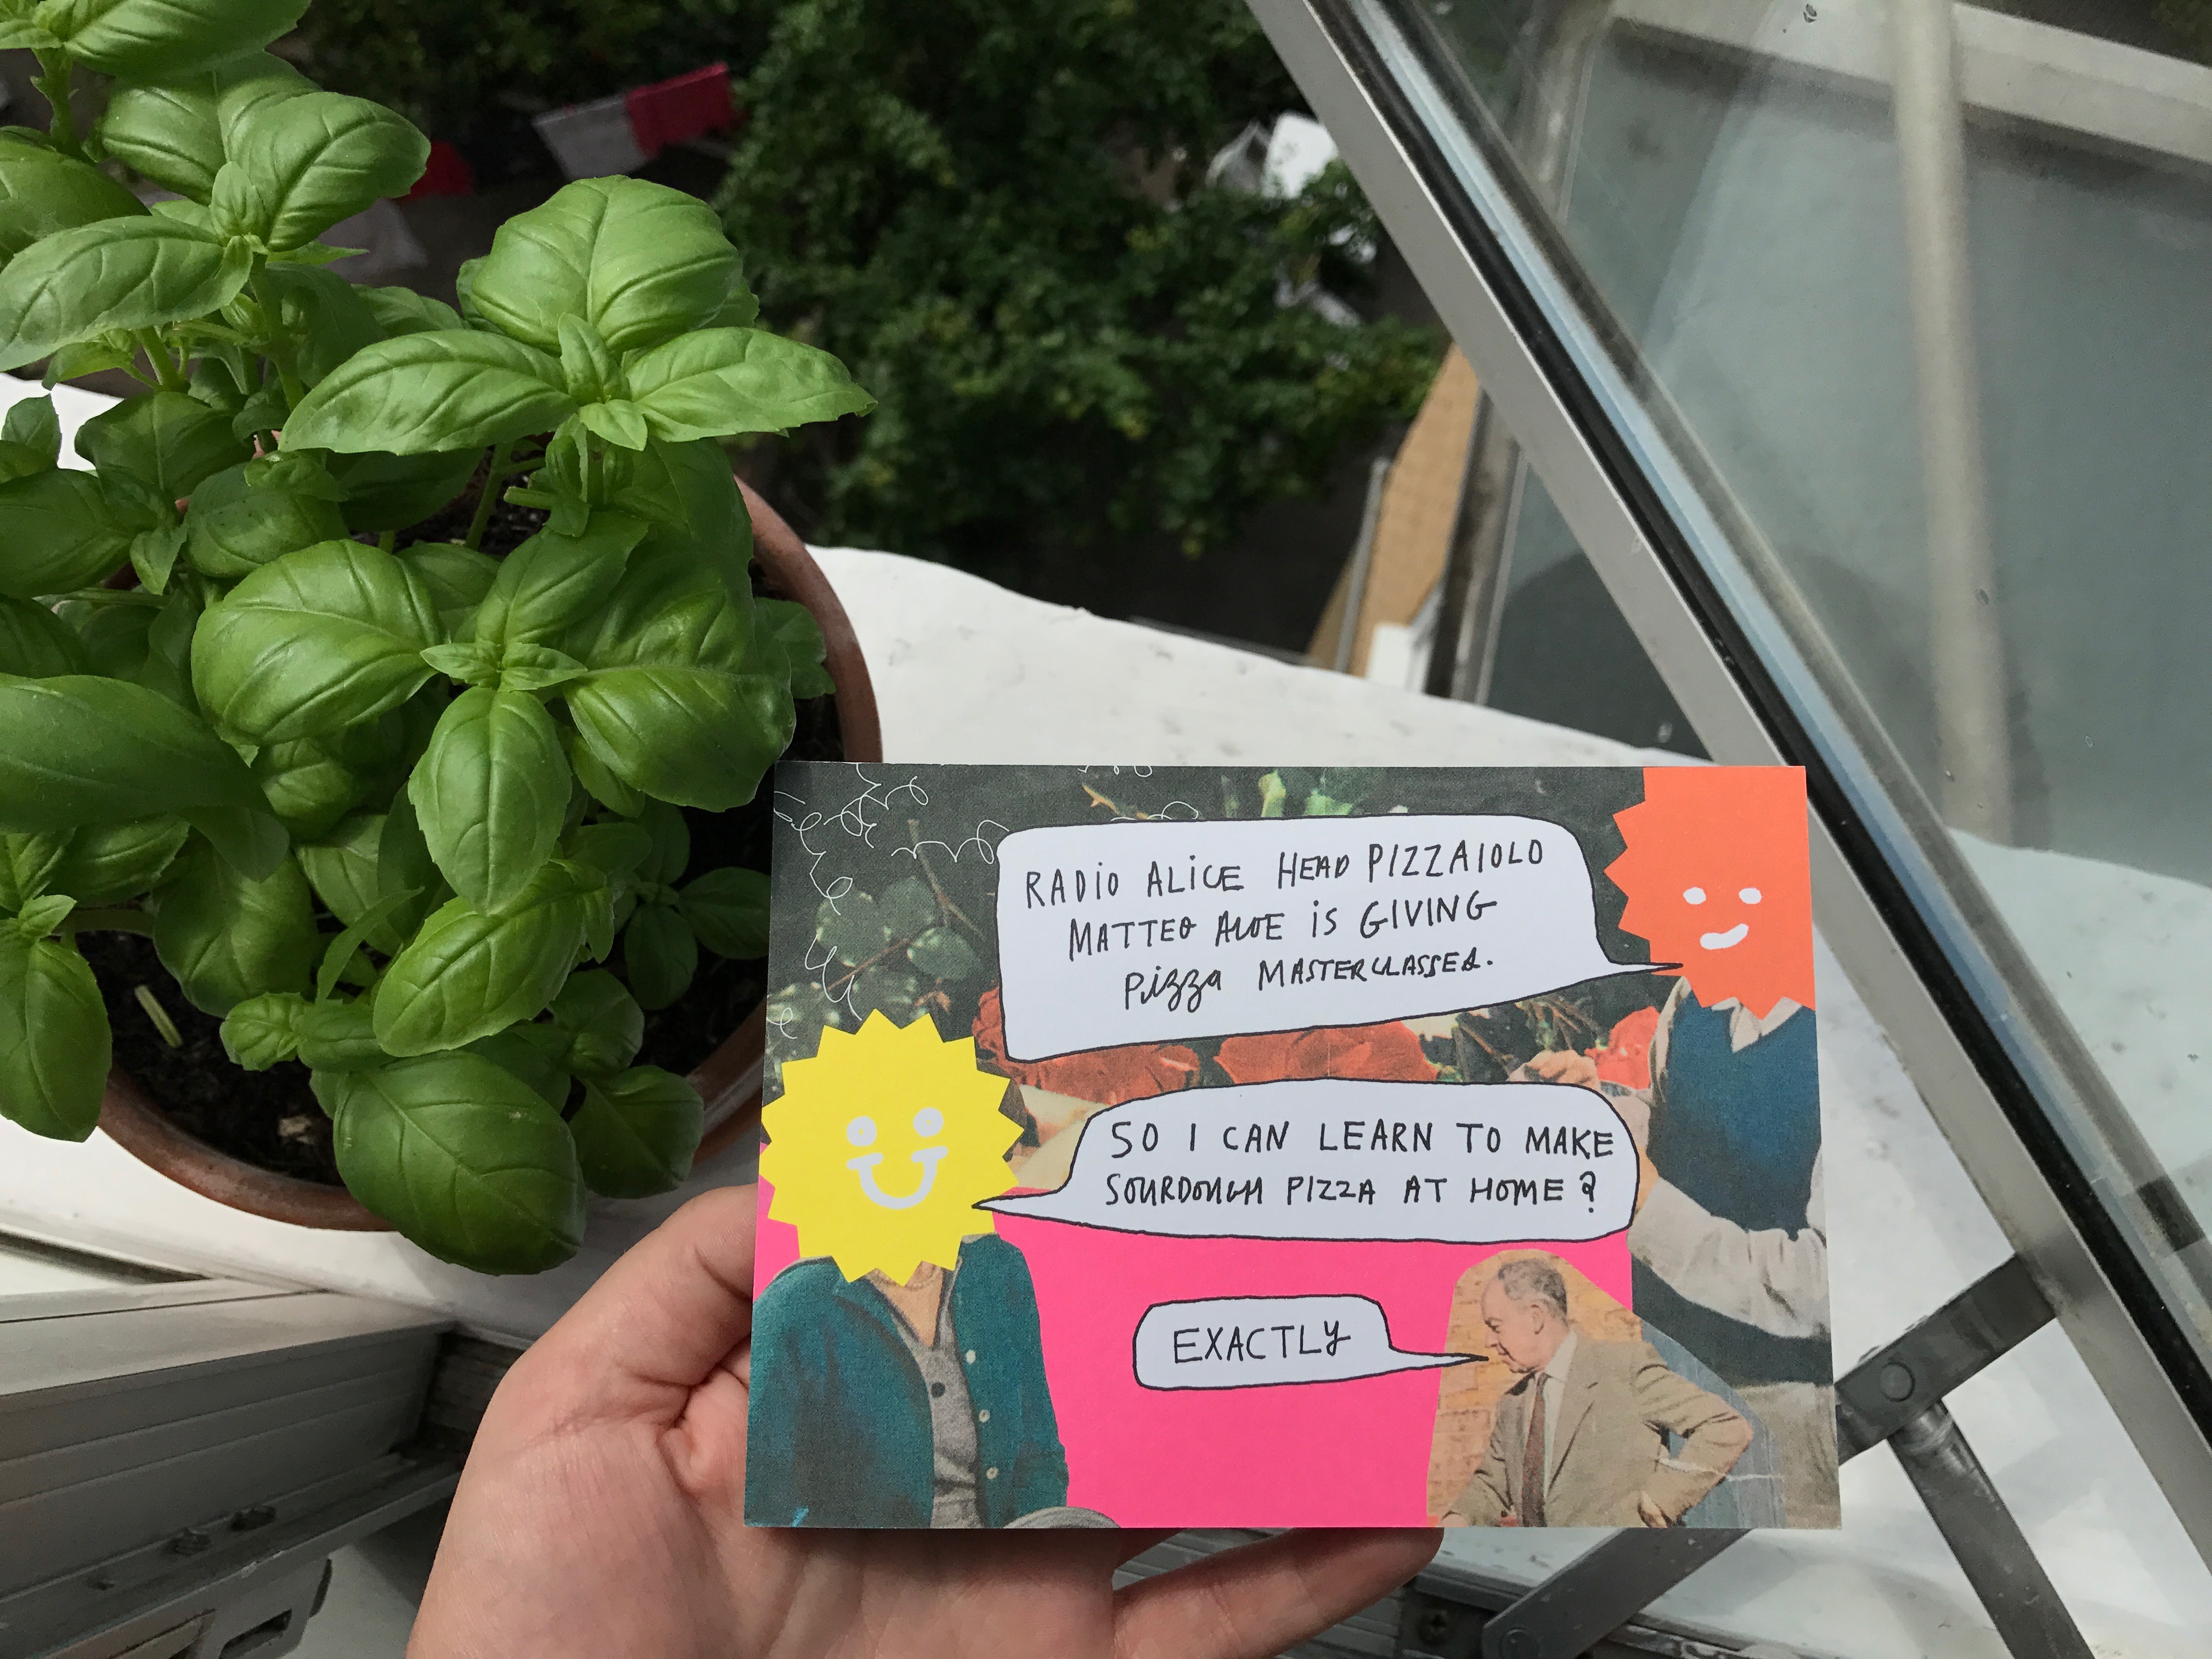 RADIO ALICE HEAD PIZZAIOLO
MATTEO ALOE IS GIVING
Pizza MASTERCLASSES.
SO I CAN LEARN TO MAKE
SOURDOUGH PIZZA AT HOME?
EXACTLY